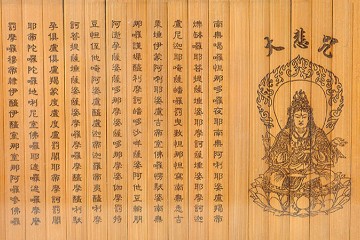 大悲咒
南無喝囉怛那哆囉夜耶南無阿唎耶婆盧羯帝
爍缽囉耶菩提薩埵婆耶摩訶薩埵婆耶摩訶迦
盧尼迦耶唵薩皤囉罰曳數怛那怛寫南無悉吉
栗埵伊蒙阿唎耶婆盧吉帝室佛囉楞馱婆南無
那囉謹墀醯利摩訶皤哆沙咩薩婆阿他豆輸朋
阿逝孕薩婆薩哆那摩婆薩哆那摩婆伽摩罰特
豆怛侄他唵阿婆盧醯盧迦帝迦羅帝夷醯唎摩
訶菩提薩埵薩婆薩婆摩囉摩囉摩醯摩醯唎馱
孕俱盧俱盧羯蒙度盧度盧罰闍耶帝摩訶罰闍
耶帝陀囉陀囉地唎尼室佛囉耶遮囉遮囉摩麼
罰摩囉穆帝隸伊醯伊醯室那室那阿囉參佛囉